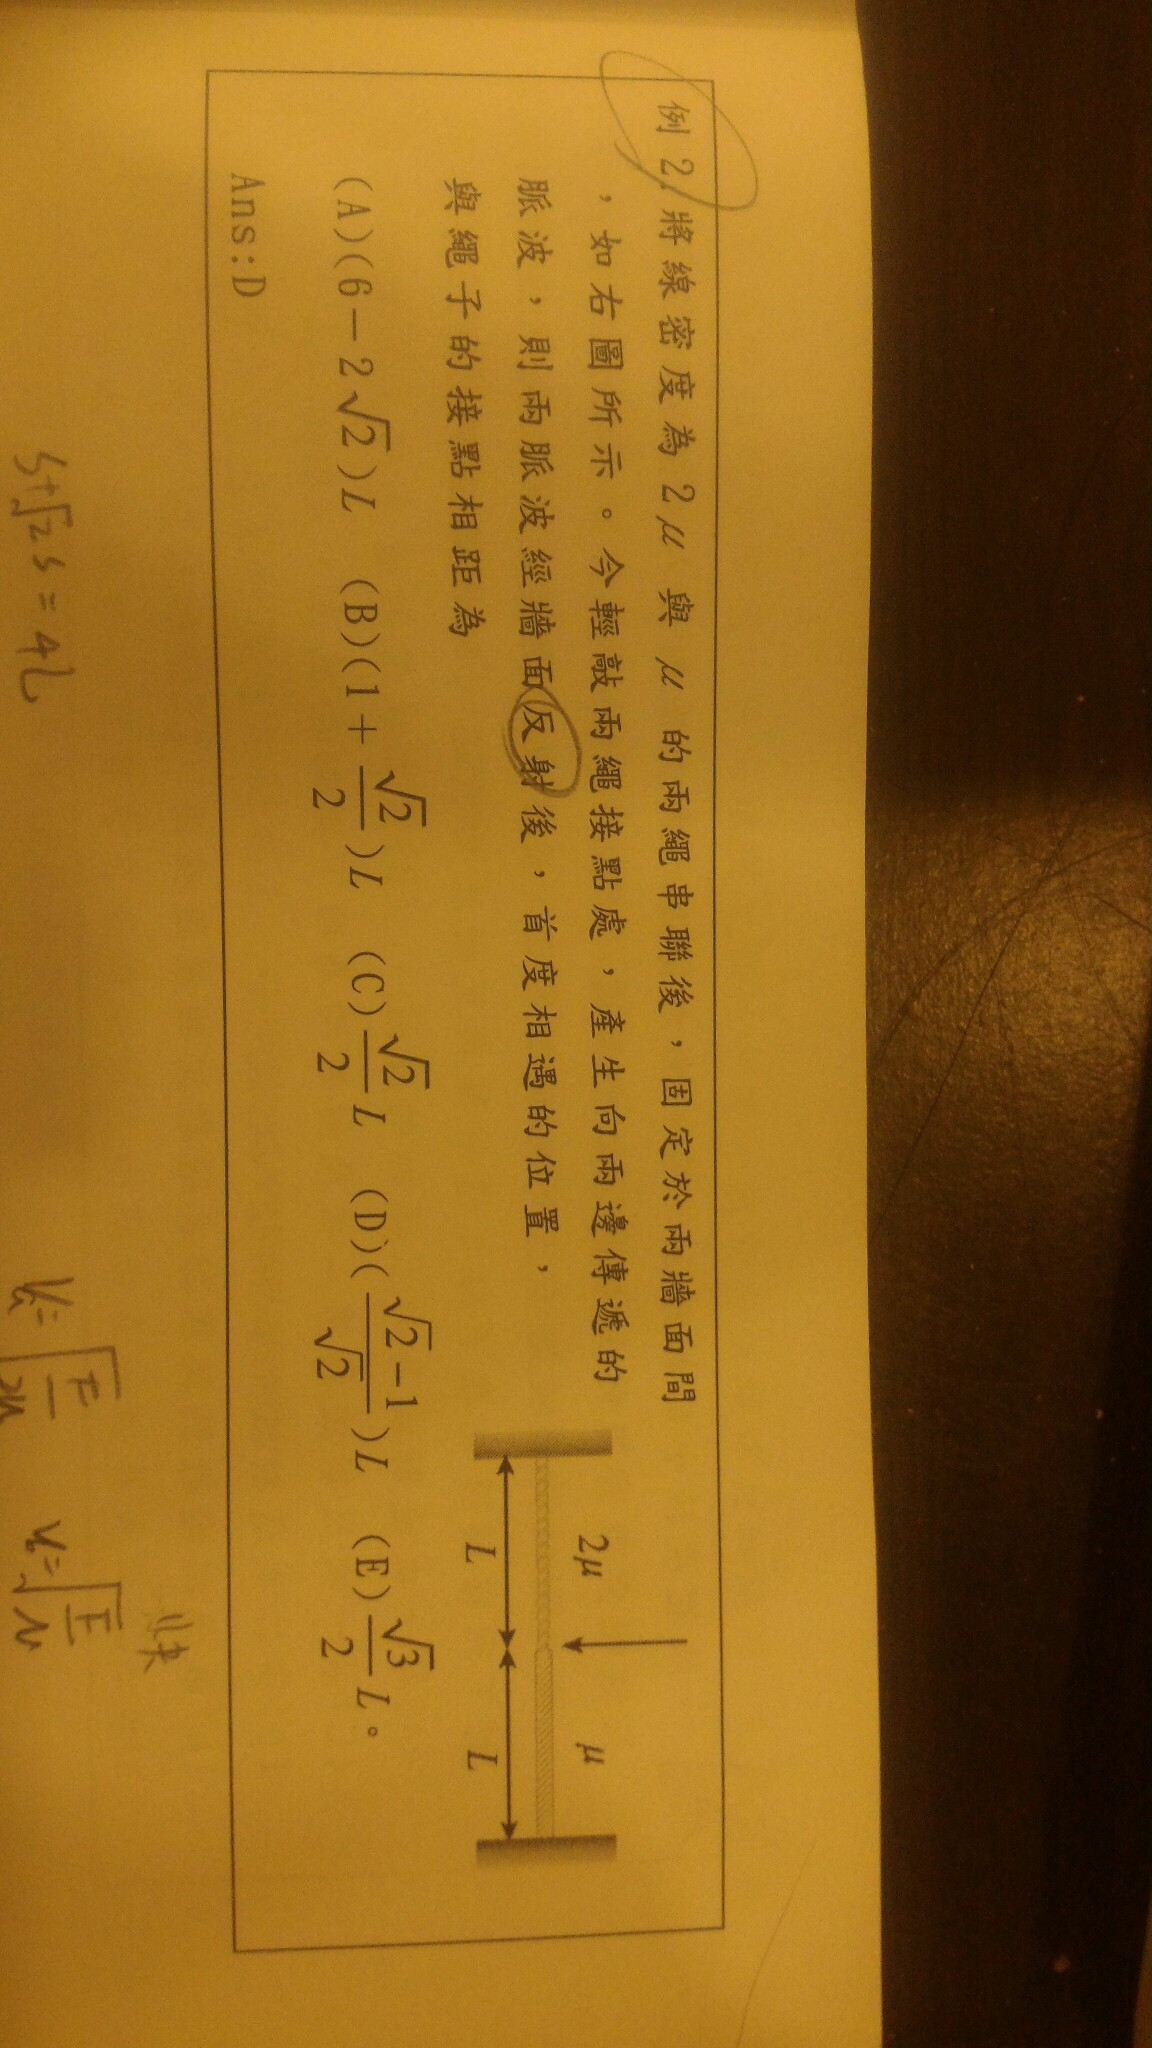 例2. 將線密度為2μ與μ的兩繩串聯後，固定於兩牆面間
，如右圖所示。今輕敲兩繩接點處，產生向兩邊傳遞的
脈波，則兩脈波經牆面反射後，首度相遇的位置，
與繩子的接點相距為
2μ μ
L L
(A)(6－2√2)L (B)(1＋√2/2)L (C)√2/2 L (D)(√2－1/√2)L (E)√3/2 L。
Ans:D
S+√2S=4L
V=√F/2μ V=√F/μ
快